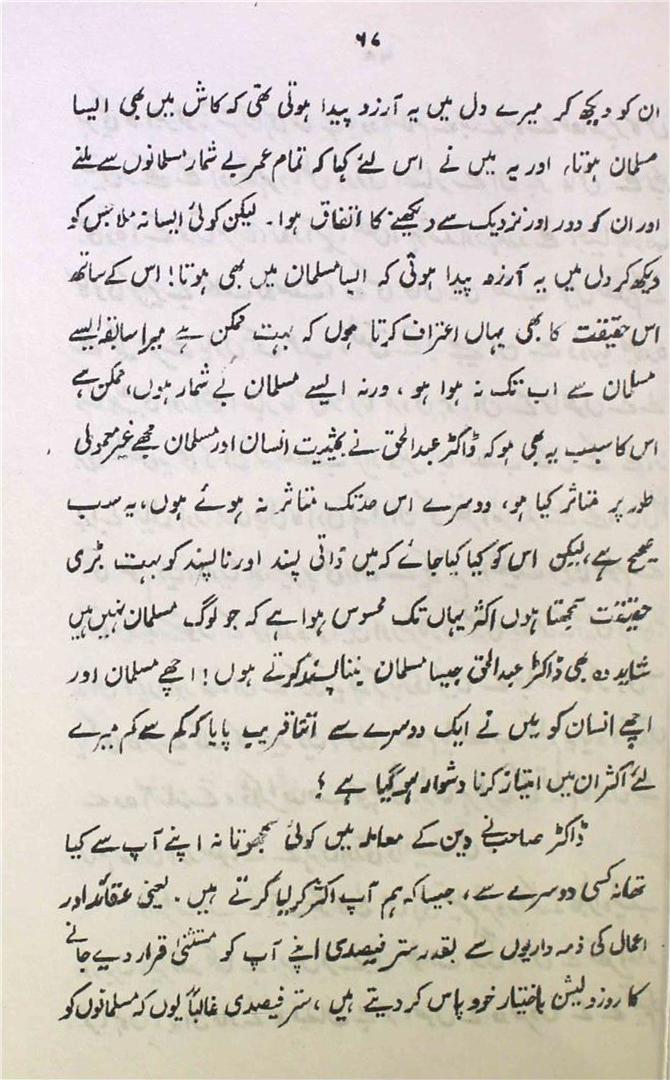 ۶۷
ان کو دیکھ کر میرے دل میں یہ آرزو پیدا ہوتی تھی کہ کاش میں بھی ایسا
مسلمان ہوتا، اور یہ میں نے اس لئے کہا کہ تمام عمر بے شمار مسلمانوں سے ملنے
اور ان کو دور اور نزدیک سے دیکھنے کا اتفاق ہوا۔ لیکن کوئی ایسا نہ ملا جس کو
دیکھ کر دل میں یہ آرزو پیدا ہوتی کہ ایسا مسلمان میں بھی ہوتا! اس کے ساتھ
اس حقیقت کا بھی یہاں اعتراف کرتا ہوں کہ بہت ممکن ہے میرا سابقہ ایسے
مسلمان سے اب تک نہ ہوا ہو، ورنہ ایسے مسلمان بے شمار ہوں، ممکن ہے
اس کا سبب یہ بھی ہو کہ ڈاکٹر عبدالحق نے بحیثیت انسان اور مسلمان مجھے غیر معمولی
طور پر متاثر کیا ہو، دوسرے اس حد تک متاثر نہ ہوئے ہوں، یہ سب
صحیح ہے، لیکن اس کو کیا کیا جائے کہ میں ذاتی پسند اور ناپسند کو بہت بڑی
حقیقت سمجھتا ہوں اکثر یہاں تک محسوس ہوا ہے کہ جو لوگ مسلمان نہیں ہیں
شاید وہ بھی ڈاکٹر عبدالحق جیسا مسلمان بننا پسند کرتے ہوں! اچھے مسلمان اور
اچھے انسان کو میں نے ایک دوسرے سے اتنا قریب پایا کہ کم سے کم میرے
لئے اکثر ان میں امتیاز کرنا دشوار ہو گیا ہے ؟
ڈاکٹر صاحب نے دین کے معاملہ میں کوئی سمجھوتا نہ اپنے آپ سے کیا
تھا نہ کسی دوسرے سے، جیسا کہ ہم آپ اکثر کر لیا کرتے ہیں۔ یعنی عقائد اور
اعمال کی ذمہ داریوں سے بقدر ستر فیصدی اپنے آپ کو مستثنیٰ قرار دیے جانے
کا روزولیشن باختیار خود پاس کر دیتے ہیں، ستر فیصدی غالباً یوں کہ مسلمانوں کو